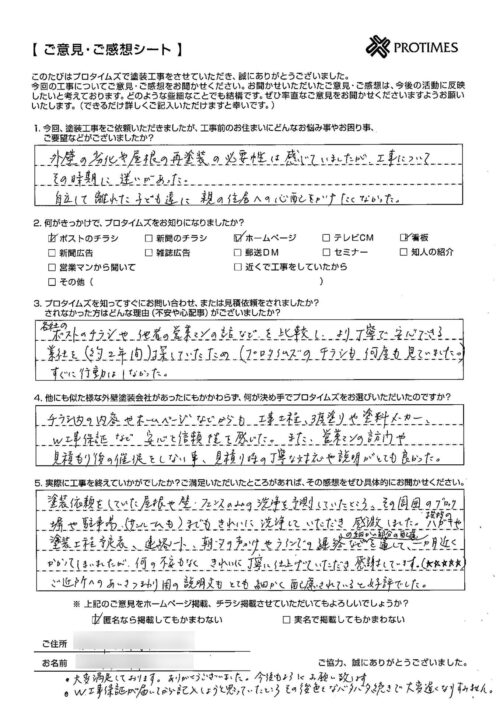 【 ご意見・ご感想シート 】
PROTIMES
このたびはプロタイムズで塗装工事をさせていただき、誠にありがとうございました。
今回の工事についてご意見・ご感想をお聞かせください。お聞かせいただいたご意見・ご感想は、今後の活動に反映
したいと考えております。どのような些細なことでも結構です。ぜひ率直なご意見をお聞かせくださいますようお願い
いたします。（できるだけ詳しくご記入いただけますと幸いです。）
1. 今回、塗装工事をご依頼いただきましたが、工事前のお住まいにどんなお悩み事やお困り事、
ご要望などがございましたか？
外壁の劣化や屋根の再塗装の必要性は感じていましたが、工事について
その時期に迷いがあった。
自立して離れた子ども達に親の住居への心配をかけたくなかった。
2. 何がきっかけで、プロタイムズをお知りになりましたか？
☑ ポストのチラシ □ 新聞のチラシ ☑ ホームページ □ テレビCM ☑ 看板
□ 新聞広告 □ 雑誌広告 □ 郵送DM □ セミナー □ 知人の紹介
□ 営業マンから聞いて □ 近くで工事をしていたから
□ その他（ ）
3. プロタイムズを知ってすぐにお問い合わせ、または見積依頼をされましたか？
されなかった方はどんな理由（不安や心配事）がございましたか？
各社のポストのチラシや他者の営業マンの話などを比較し、より丁寧で安心できる
業社を（約2年間）探していたため（プロタイムズのチラシも何度も見ていました。）
すぐに行動はしなかった。
4. 他にも似た様な外壁塗装会社があったにもかかわらず、何が決め手でプロタイムズをお選びいただいたのですか？
チラシ内の内容やホームページなどからも、工事工程、3度塗りや塗料メーカー、
W工事保証など安心と信頼性を感じた。また、営業マンの訪問や
見積もり後の催促をしない事、見積り時の丁寧な対応や説明がとても良かった。
5. 実際に工事を終えていかがでしたか？ご満足いただいたところがあれば、その感想をぜひ具体的にお聞かせください。
塗装依頼をしていた屋根や壁・フェンスのみの洗浄を予測していたところ、その周囲のブロック
塀や駐車場、までもきれいに洗浄していただき感激しました。
塗装工程予定表、連絡ノート、朝・夕の声かけやラインでの連絡などを通して、一ヵ月近く
かかってしまいましたが、何の不安もなくきれいに丁寧に仕上げていただき感謝しています。(★★★★★)
ご近所へのあいさつまわり用の説明文もとても細かく配慮されていると好評でした。
※ 上記のご意見をホームページ掲載、チラシ掲載させていただいてもよろしいでしょうか？
☑ 匿名なら掲載してもかまわない □ 実名で掲載してもかまわない
ご住所
お名前
ご協力、誠にありがとうございました。
・大変満足しております。ありがとうございました。今後もよろしくお願い致します
・W工事保証が届いてから記入しようと思っていたところ その後色々なバタバタ続きで大変遅くなりすみません。